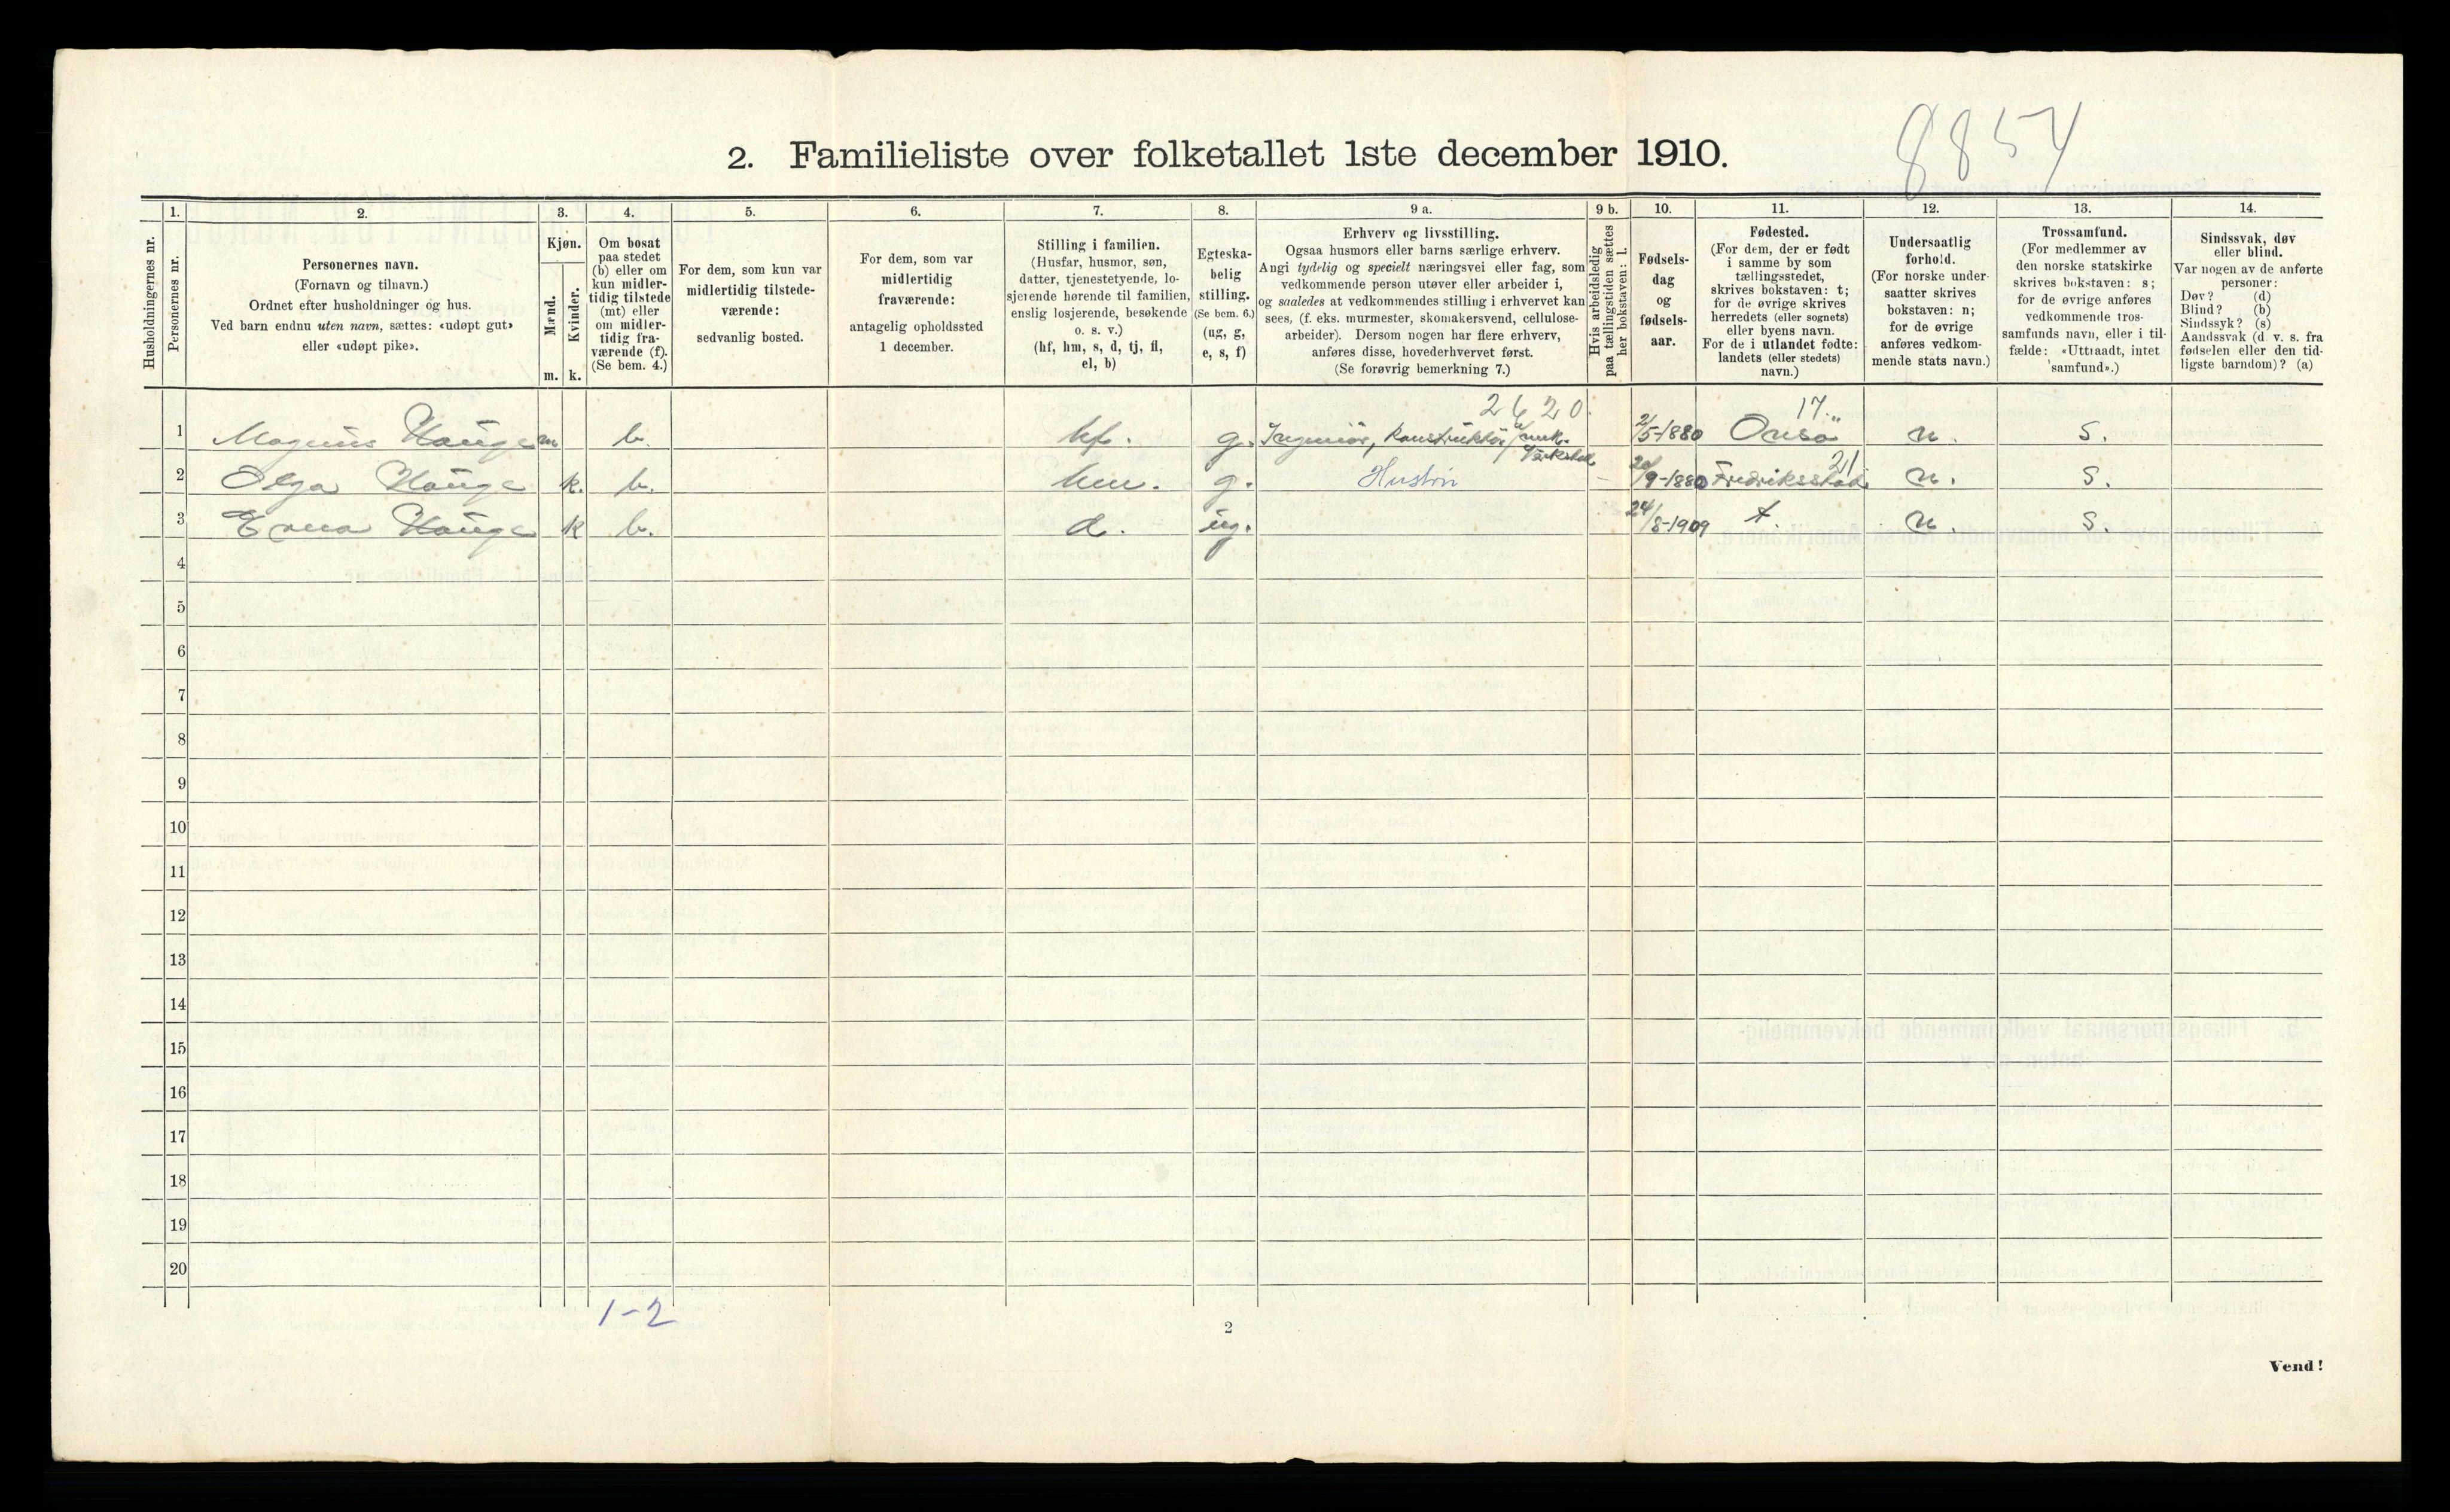 8854
2. Familieliste over folketallet 1ste december 1910.
Husholdningernes nr.
1. Personernes nr.
2. Personernes navn. (Fornavn og tilnavn.) Ordnet efter husholdninger og hus. Ved barn endnu uten navn, sættes: «udøpt gut» eller «udøpt pike».
3. Kjøn. Mænd. m. Kvinder. k.
4. Om bosat paa stedet (b) eller om kun midlertidig tilstede (mt) eller om midlertidig fraværende (f). (Se bem. 4.)
5. For dem, som kun var midlertidig tilstedeværende: sedvanlig bosted.
6. For dem, som var midlertidig fraværende: antagelig opholdssted 1 december.
7. Stilling i familien. (Husfar, husmor, søn, datter, tjenestetyende, losjerende hørende til familien, enslig losjerende, besøkende o. s. v.) (hf, hm, s, d, tj, fl, el, b)
8. Egteskabelig stilling. (Se bem. 6.) (ug, g, e, s, f)
9 a. Erhverv og livsstilling. Ogsaa husmors eller barns særlige erhverv. Angi tydelig og specielt næringsvei eller fag, som vedkommende person utøver eller arbeider i, og saaledes at vedkommendes stilling i erhvervet kan sees, (f. eks. murmester, skomakersvend, cellulosearbeider). Dersom nogen har flere erhverv, anføres disse, hovederhvervet først. (Se forøvrig bemerkning 7.)
9 b. Hvis arbeidsledig paa tællingstiden sættes her bokstaven: l.
10. Fødselsdag og fødselsaar.
11. Fødested. (For dem, der er født i samme by som tællingsstedet, skrives bokstaven: t; for de øvrige skrives herredets (eller sognets) eller byens navn. For de i utlandet fødte: landets (eller stedets) navn.)
12. Undersaatlig forhold. (For norske undersaatter skrives bokstaven: n; for de øvrige anføres vedkommende stats navn.)
13. Trossamfund. (For medlemmer av den norske statskirke skrives bokstaven: s; for de øvrige anføres vedkommende trossamfunds navn, eller i tilfælde: «Uttraadt, intet samfund».)
14. Sindssvak, døv eller blind. Var nogen av de anførte personer: Døv? (d) Blind? (b) Sindssyk? (s) Aandssvak (d. v. s. fra fødselen eller den tidligste barndom)? (a)
2620 17
1 Magnus Hauge m b. hf. g. Ingeniør, Konstruktør 2/5-1880 Onsø n. s.
21
2 Olga Hauge k. b. hm. g. Hustru - 20/9-1880 Fredriksstad n. s.
3 Erna Hauge k b. d. ug. 24/8-1909 t. n. s.
4
5
6
7
8
9
10
11
12
13
14
15
16
17
18
19
20
1-2
2
Vend!